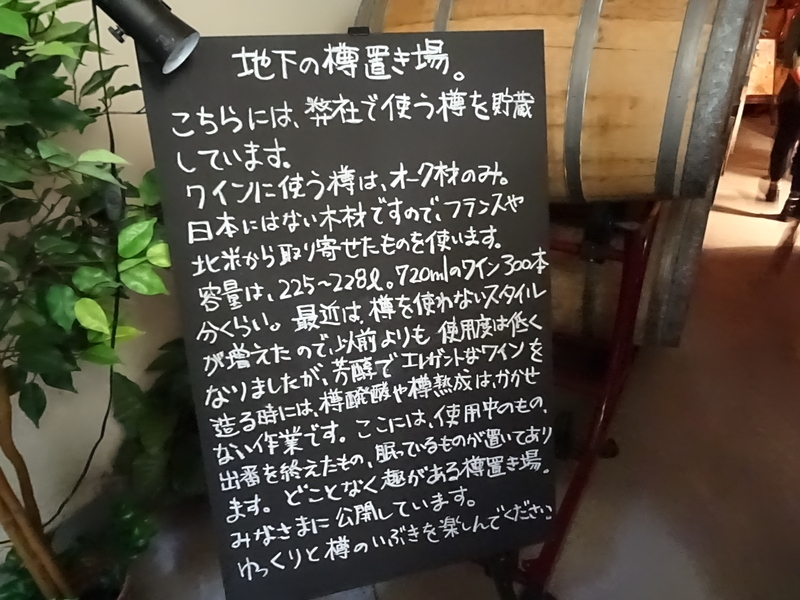 地下の樽置き場。
こちらには、弊社で使う樽を貯蔵
しています。
ワインに使う樽は、オーク材のみ。
日本にはない木材ですので、フランスや
北米から取り寄せたものを使います。
容量は、225〜228ℓ。720mlのワイン300本
分くらい。最近は、樽を使わないスタイル
が増えたので、以前よりも使用度は低く
なりましたが、芳醇でエレガントなワインを
造る時には、樽醗酵や樽熟成は、かかせ
ない作業です。ここには、使用中のもの、
出番を終えたもの、眠っているものが置いてあり
ます。どことなく趣がある樽置き場。
みなさまに公開しています。
ゆっくりと樽のいぶきを楽しんでください